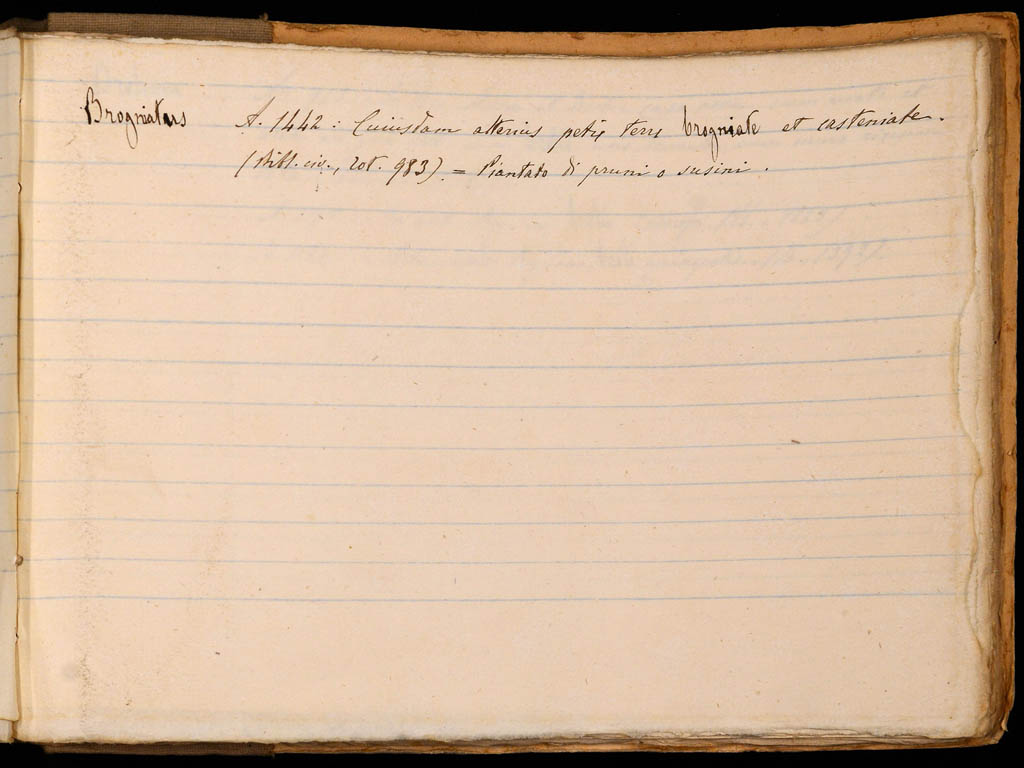 Brogniatus A. 1442: Cuiusdam alterius petie terre brogniate et casteniate.
(Bibl. civ., rot. 983) = Piantato di pruni o susini.